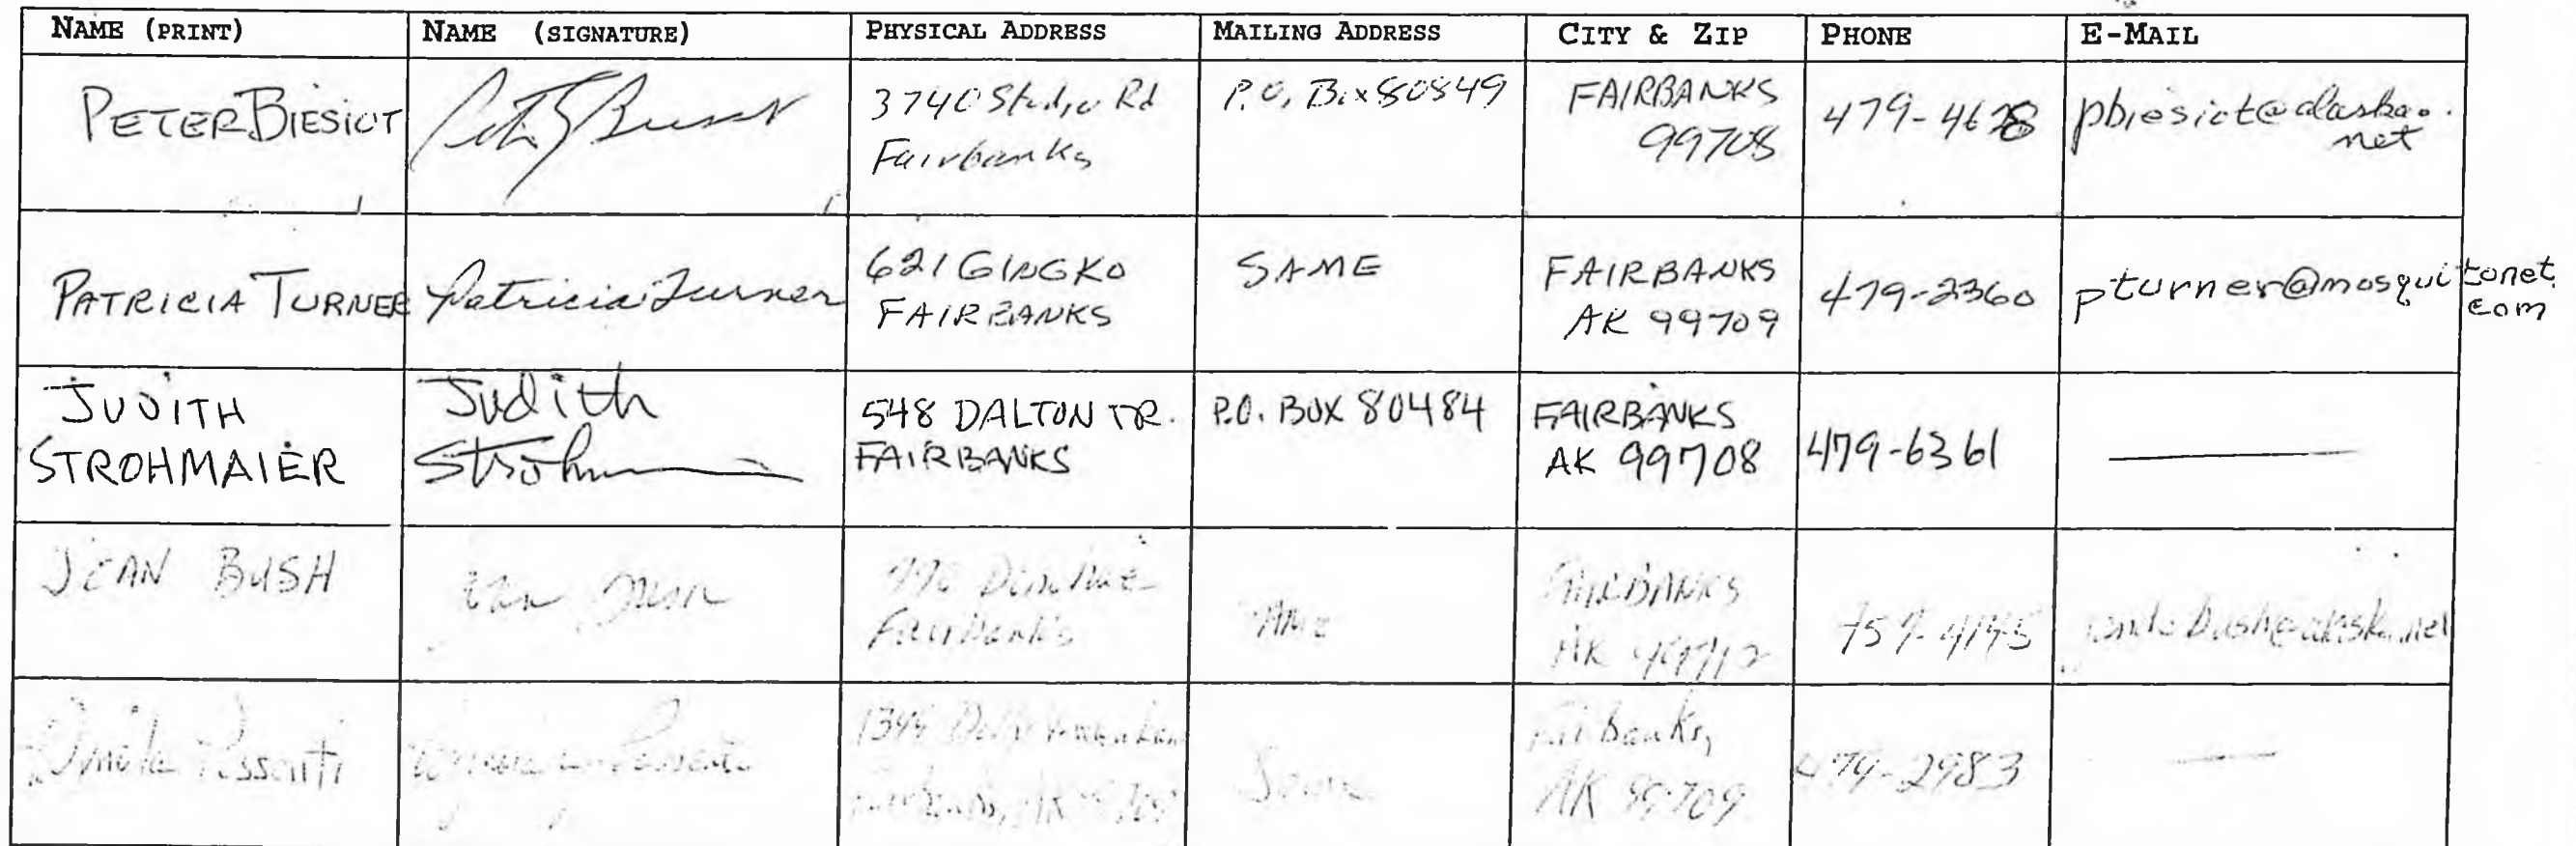 NAME (PRINT)
NAME (SIGNATURE)
PHYSICAL ADDRESS
MAILING ADDRESS
CITY & ZIP
PHONE
E-MAIL
PETER BIESIOT
3740 Studio Rd
Fairbanks
P.O. Box 80849
FAIRBANKS
99708
479-4628
pbiesiot@alaska.
net
PATRICIA TURNER
Patricia Turner
621 GINGKO
FAIRBANKS
SAME
FAIRBANKS
AK 99709
479-2360
pturner@mosquitonet.
com
JUDITH
STROHMAIER
Judith
Strohm
548 DALTON TR.
FAIRBANKS
P.O. BOX 80484
FAIRBANKS
AK 99708
479-6361
JEAN BUSH
Fairbanks
FAIRBANKS
AK 99712
Possenti
1394
Same
Fairbanks,
AK 99709
479-2983